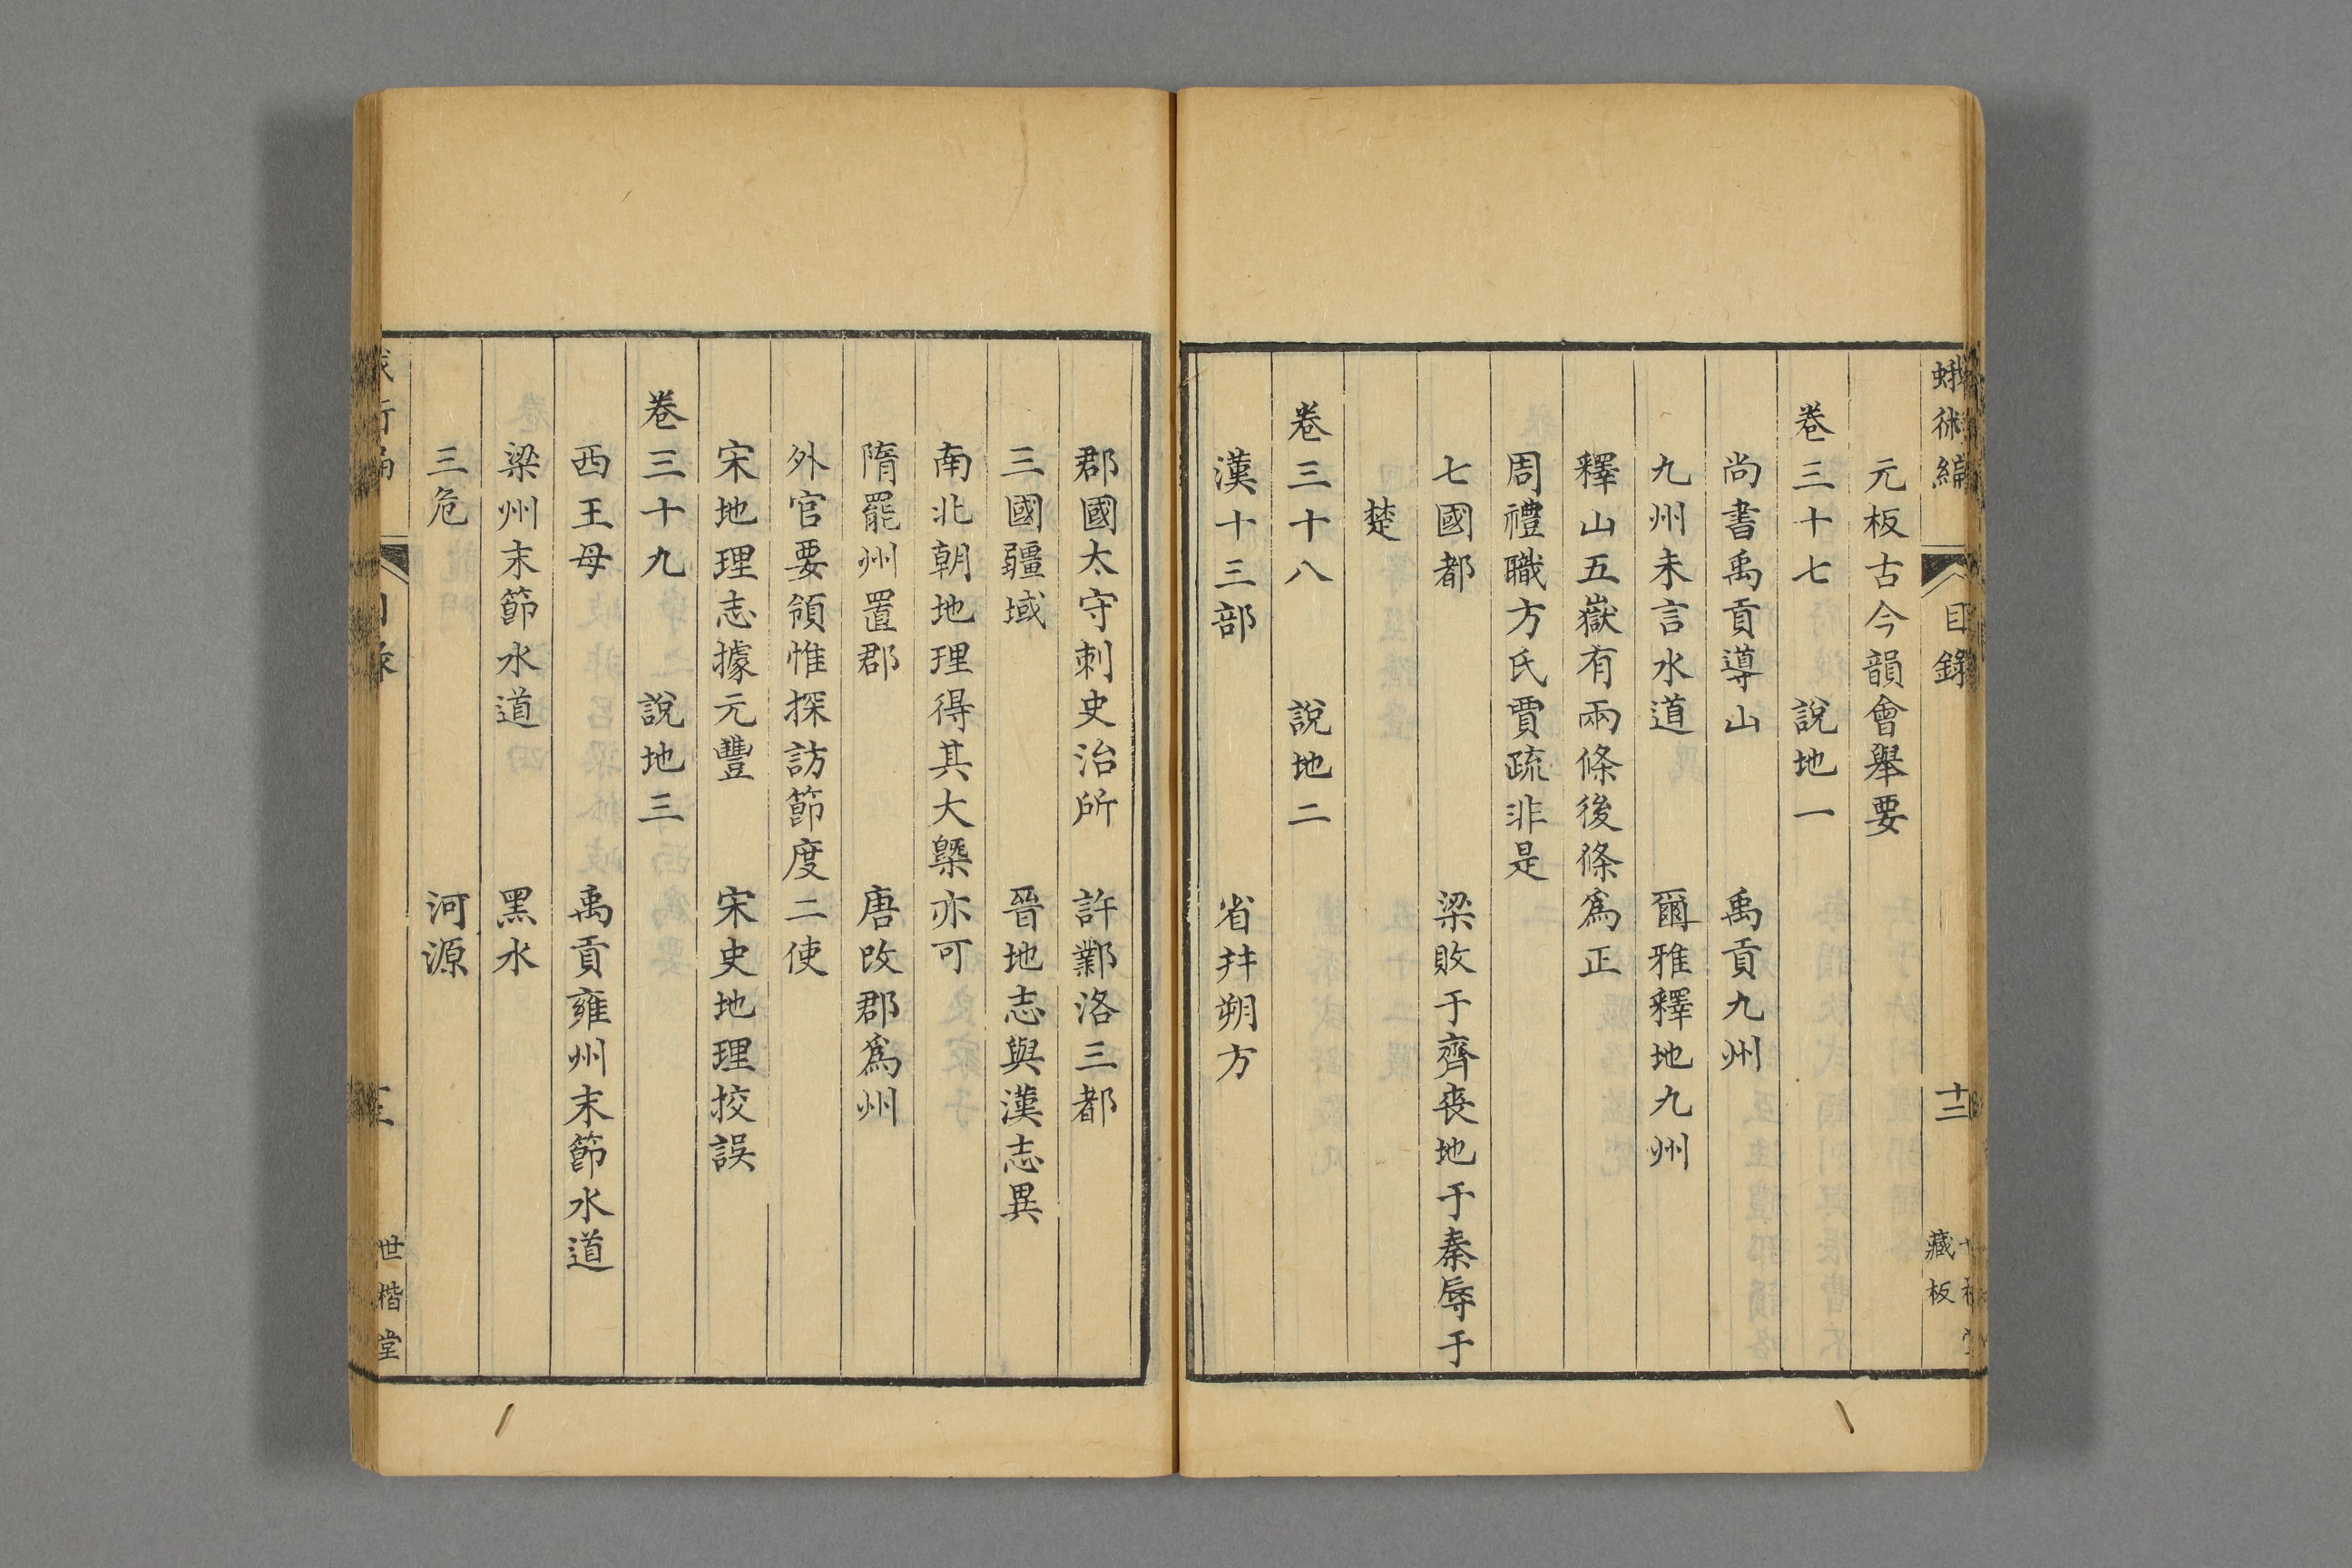 蛾術編 目錄 十二 藏板
元板古今韻會舉要
卷三十七 說地一
尚書禹貢導山 禹貢九州
九州末言水道 爾雅釋地九州
釋山五嶽有兩條後條爲正
周禮職方氏賈疏非是
七國都 梁敗于齊喪地于秦辱于
楚
卷三十八 說地二
漢十三部 省幷朔方
郡國太守刺史治所 許鄴洛三都
三國疆域 晉地志與漢志異
南北朝地理得其大槩亦可
隋罷州置郡 唐改郡爲州
外官要領惟探訪節度二使
宋地理志據元豐 宋史地理挍誤
卷三十九 說地三
西王母 禹貢雍州末節水道
梁州末節水道 黑水
三危 河源
世楷堂